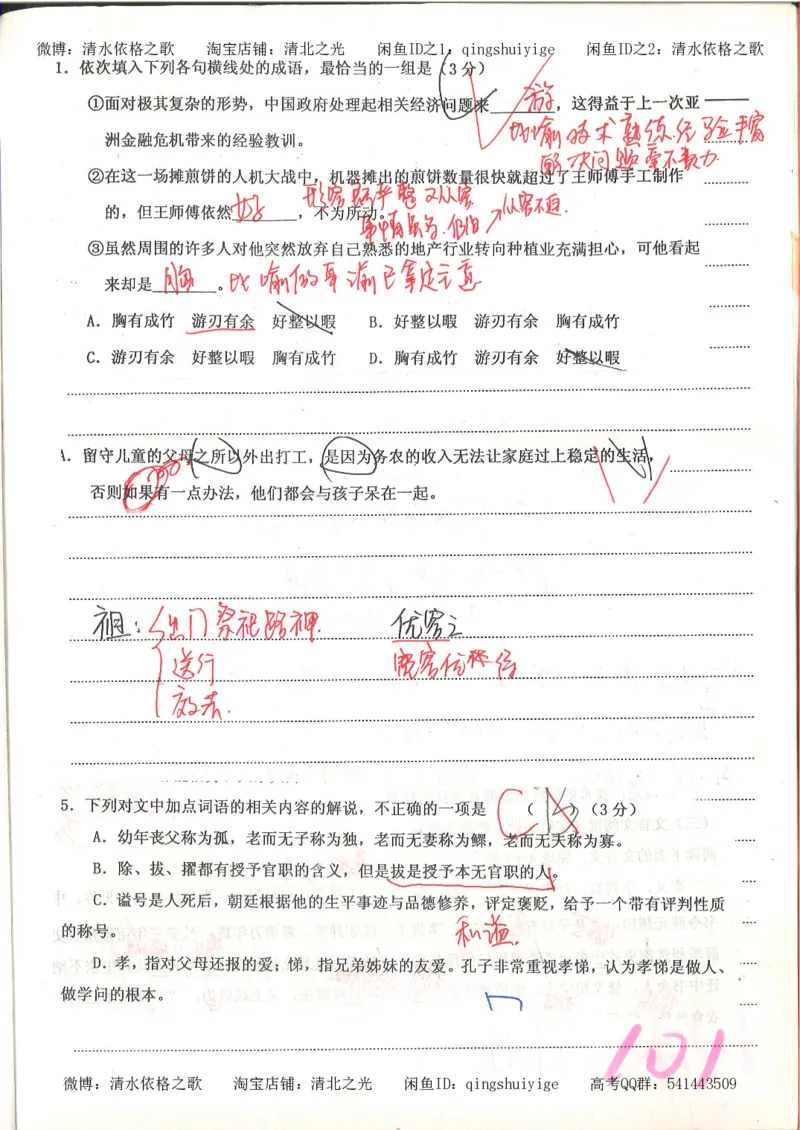 微博：清水依格之歌 淘宝店铺：清北之光 闲鱼ID之1：qingshuiyige 闲鱼ID之2：清水依格之歌
1．依次填入下列各句横线处的成语，最恰当的一组是（3分）
①面对极其复杂的形势，中国政府处理起相关经济问题来 游 ，这得益于上一次亚
洲金融危机带来的经验教训。
比喻技术熟练，经验丰富
解决问题毫不费力
②在这一场摊煎饼的人机大战中，机器摊出的煎饼数量很快就超过了王师傅手工制作
形容既严整又从容
的，但王师傅依然 好 ，不为所动。
从容不迫．
③虽然周围的许多人对他突然放弃自己熟悉的地产行业转向种植业充满担心，可他看起
来却是 胸 。比喻做事前已拿定主意
A．胸有成竹 游刃有余 好整以暇 B．好整以暇 游刃有余 胸有成竹
C．游刃有余 好整以暇 胸有成竹 D．胸有成竹 游刃有余 好整以暇
留守儿童的父母之所以外出打工，是因为务农的收入无法让家庭过上稳定的生活，
否则如果有一点办法，他们都会与孩子呆在一起。
祖： 出门祭祀路神． 优客之
送行
效法．
5．下列对文中加点词语的相关内容的解说，不正确的一项是 （ ）（3分）
C
A．幼年丧父称为孤，老而无子称为独，老而无妻称为鳏，老而无夫称为寡。
B．除、拔、擢都有授予官职的含义，但是拔是授予本无官职的人。
C．谥号是人死后，朝廷根据他的生平事迹与品德修养，评定褒贬，给予一个带有评判性质
的称号。
私谥．
D．孝，指对父母还报的爱；悌，指兄弟姊妹的友爱。孔子非常重视孝悌，认为孝悌是做人、
做学问的根本。
101
微博：清水依格之歌 淘宝店铺：清北之光 闲鱼ID：qingshuiyige 高考QQ群：541443509